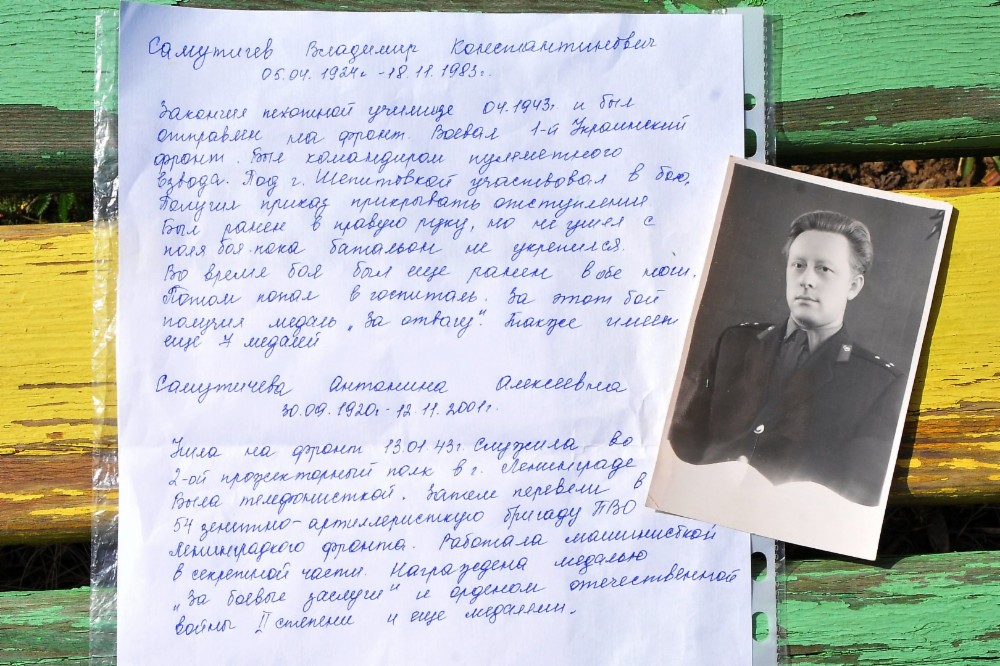 Самутичев Владимир Константинович
05.04.1924г. - 18.11.1983г.
Закончил пехотной училище 04.1943г и был
отправлен на фронт. Воевал 1-й Украинский
фронт. Был командиром пулеметного
взвода. Под г. Шепитовкой участвовал в бою.
Получил приказ прикрывать отступления.
Был ранен в правую руку, но не ушел с
поля боя пока батальон не укрепился.
Во время боя был еще ранен в обе ноги.
Потом попал в госпиталь. За этот бой
получил медаль „За отвагу". Также имеет
еще 7 медалей
Самутичева Антонина Алексеевна
30.09.1920г - 12.11.2001г.
Ушла на фронт 13.01.43г. Служила во
2-ой прожекторный полк в г. Ленинграде
Была телефонисткой. Затем перевели в
54 зенитно-артиллеристкую бригаду ПВО
Ленинградкого фронта. Работала машинисткой
в секретной части. Награждена медалью
„За боевые заслуги" и орденом отечественной
войны II степени и еще медалями.